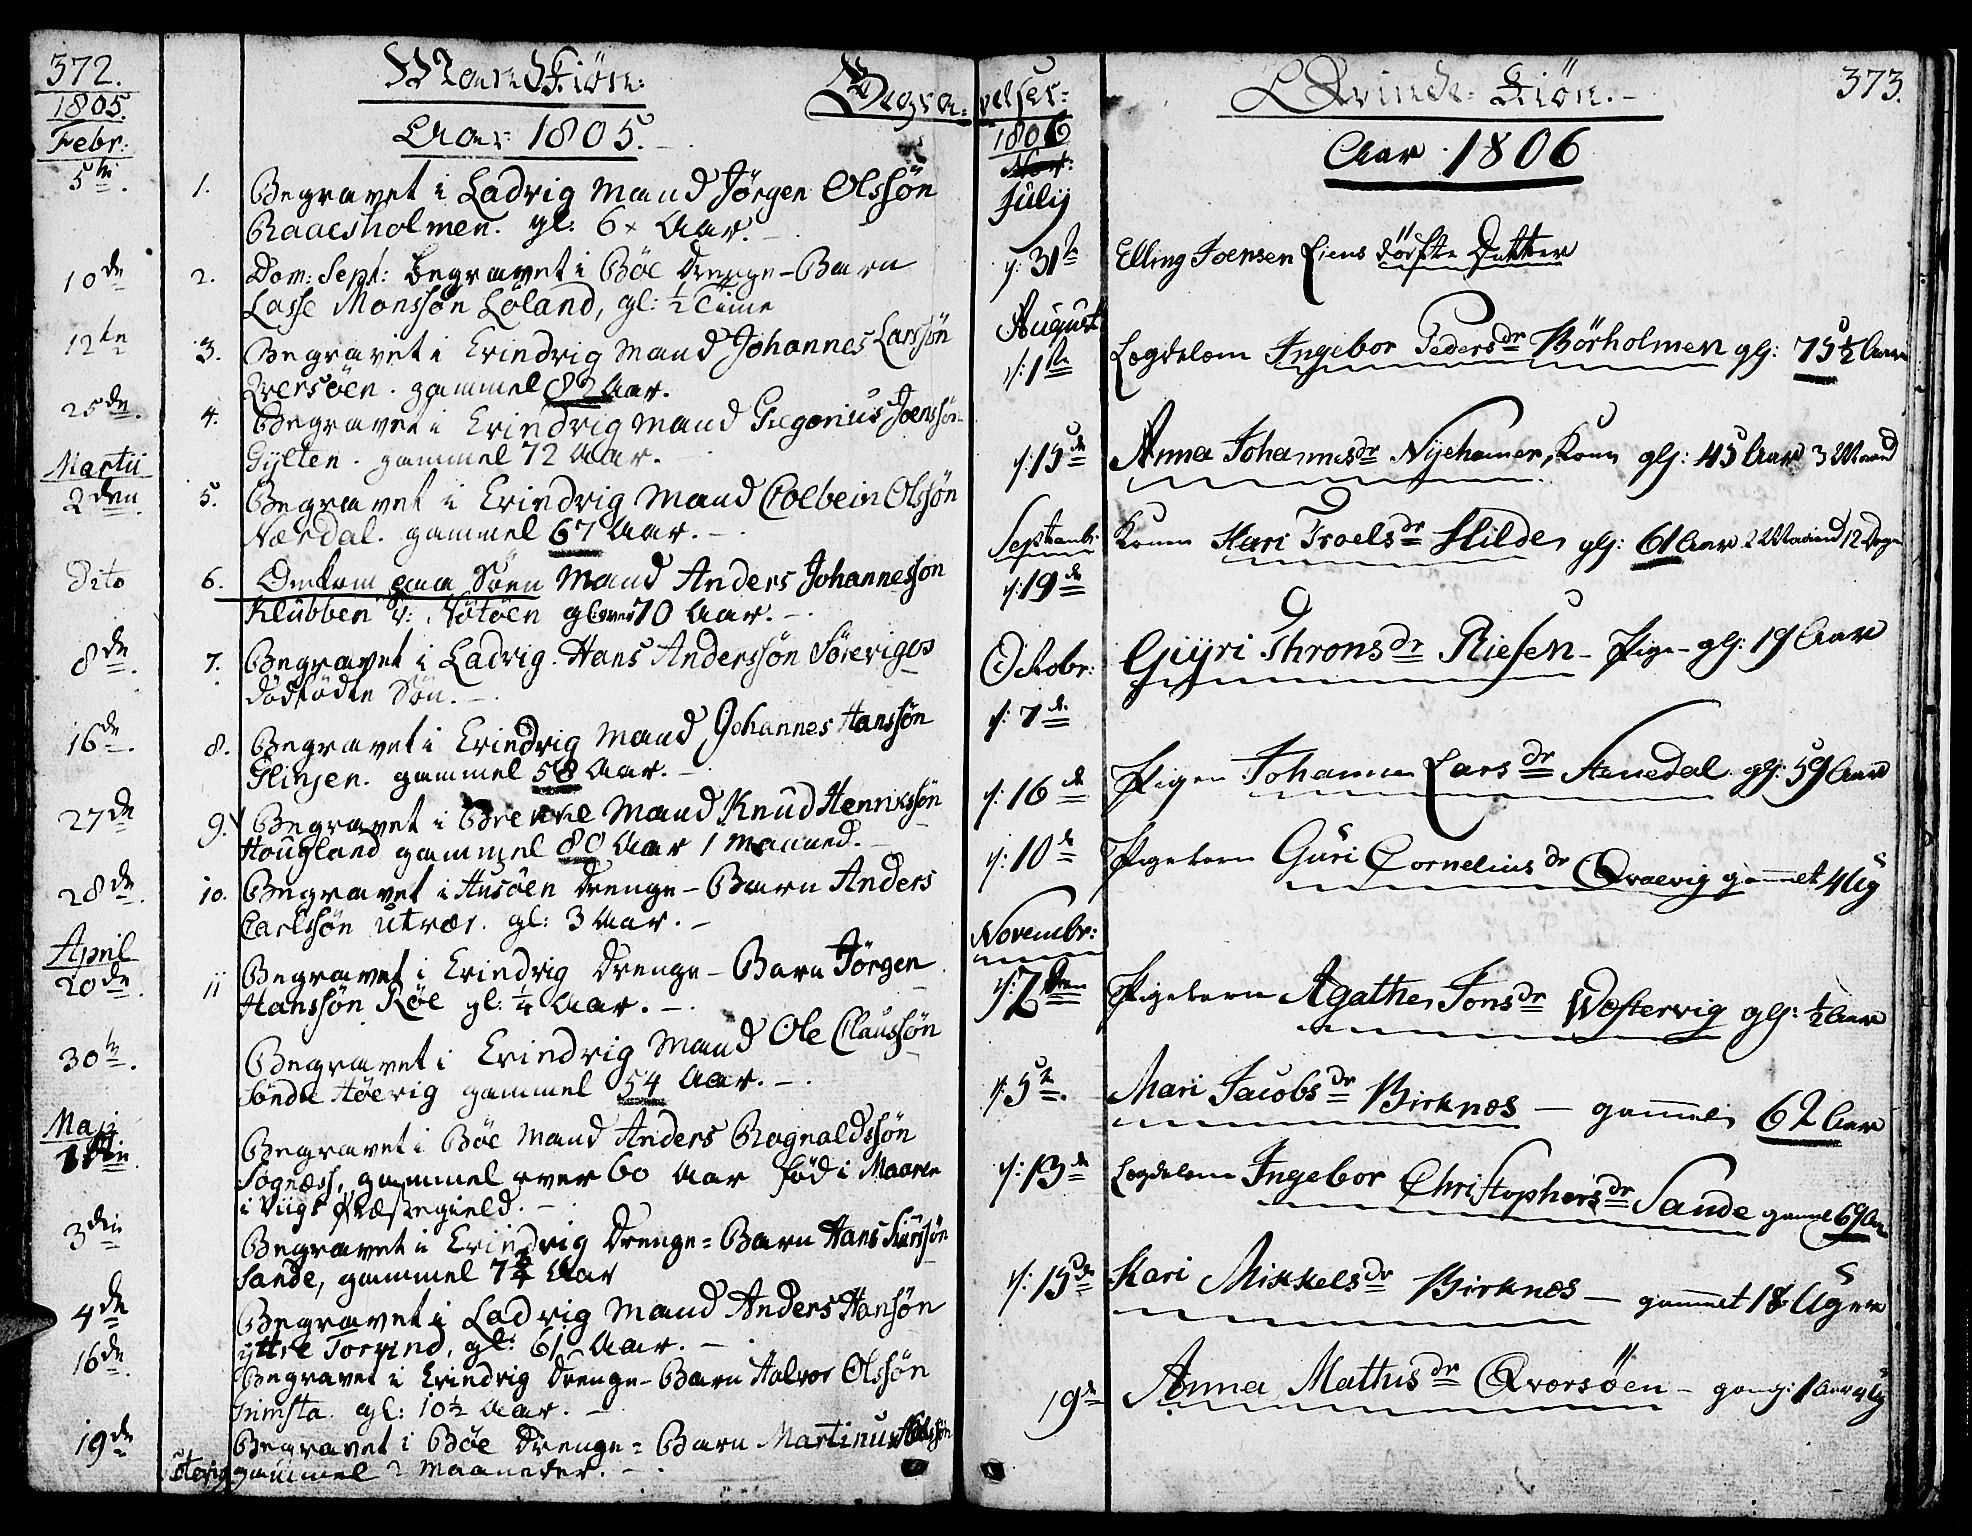 372.
Mand Kiøn:
Begra=
1805.
Aar 1805.
Febr:
5te. 1. Begravet i Ladvig Mand Jørgen Olssøn
Raaesholmen. gl: 6 Aar.
10de 2. Dom: Sept: begravet i Bøe Drenge-Barn
Lasse Monssøn Løland, gl: ½ Time
12te 3. Begravet i Evindvig Mand Johannes Larssøn
Qversøen. gammel Aar.
25de. 4. Begravet i Evindvig Mand Gregorius Joenssøn
Gylten. gammel 72 Aar.
Martii
2den 5. Begravet i Evindvig Mand Colbein Olssøn
Nærdal. gammel 67 Aar.
Dito 6. Omkom paa Søen Mand Anders Johannessøn
Klubben gl over 70 Aar.
8de. 7. Begravet i Ladvig Hans Anderssøn Søreviges
dødfødte Søn.
16de. 8. Begravet i Evindvig Mand Johannes Hanssøn
Glinsen. gammel 58 Aar.
27de 9. Begravet i Brekke Mand Knud Henrikssøn
Hougland gammel 80 Aar 1 Maaned.
28de. 10. Begravet i Husøen Drenge-Barn Anders
Carlssøn Utvær. gl: 3 Aar.
April
20de. 11 Begravet i Evindvig Drenge-Barn Jørgen
Hanssøn Røe gl: ¼ Aar.
30te. Begravet i Evindvig Mand Ole Claussøn
Søndre Høevig gammel 54 Aar.
Maji
Begravet i Bøe Mand Anders Rognaldssøn
Sognæss, gammel over 60 Aar fød i Maaren
i Viigs Præstegield.
3die Begravet i Evindvig Drenge=Barn Hans
Sande, gammel Aar
4de Begravet i Ladvig Mand Anders Hanssøn
yttre Torvind, gl: 61 Aar.
16de. Begravet i Evindvig Drenge-Barn Halvor Olssøn
gl: 10½ Aar.
19de Begravet i Bøe Drenge=Barn Martinus
gammel 2 Maaneder.
velser=
Qvinde=Kiøn.
373.
1806
Aar 1806
Julij
d: 31te Elling Joensen Liens dödfte Datter
August
d: 1ste Logdelem Ingebor Pedersdr Börholmen glj: 75½ Aar
d: 15de Anna Johannesdr Nyehamer, Kone glj: 45 Aar 3 Maaned
Septembr:
d: 19de Kone Kari Troelsdr Hilde glj: 61 Aar 2 Maaned 12 Dage
Octobr:
d: 7de Güÿri Thronsdr Riesen - Pige - glj: 19 Aar
d: 16de Pigen Johanne Larsdr Stenedal glj: 59 Aar
d: 10de Pigebarn Güri Corneliusdr Qvævig gam̄elt 4 Ug
Novembr:
d: 2den Pigebarn Agathe Jonsdr Westervig glj: ½ Aar
d: 5te. Mari Jacobsdr Birknes — gam̄el 62 Aar
d: 13de Logdelem Ingebor Christophersdr Sande gamel 69 Aar
d: 15de Kari Mikkelsdr Birknes — gam̄elt 18 Uger
19de Anna Mathisdr Qvorsöen - 1 Aar 4 Ug